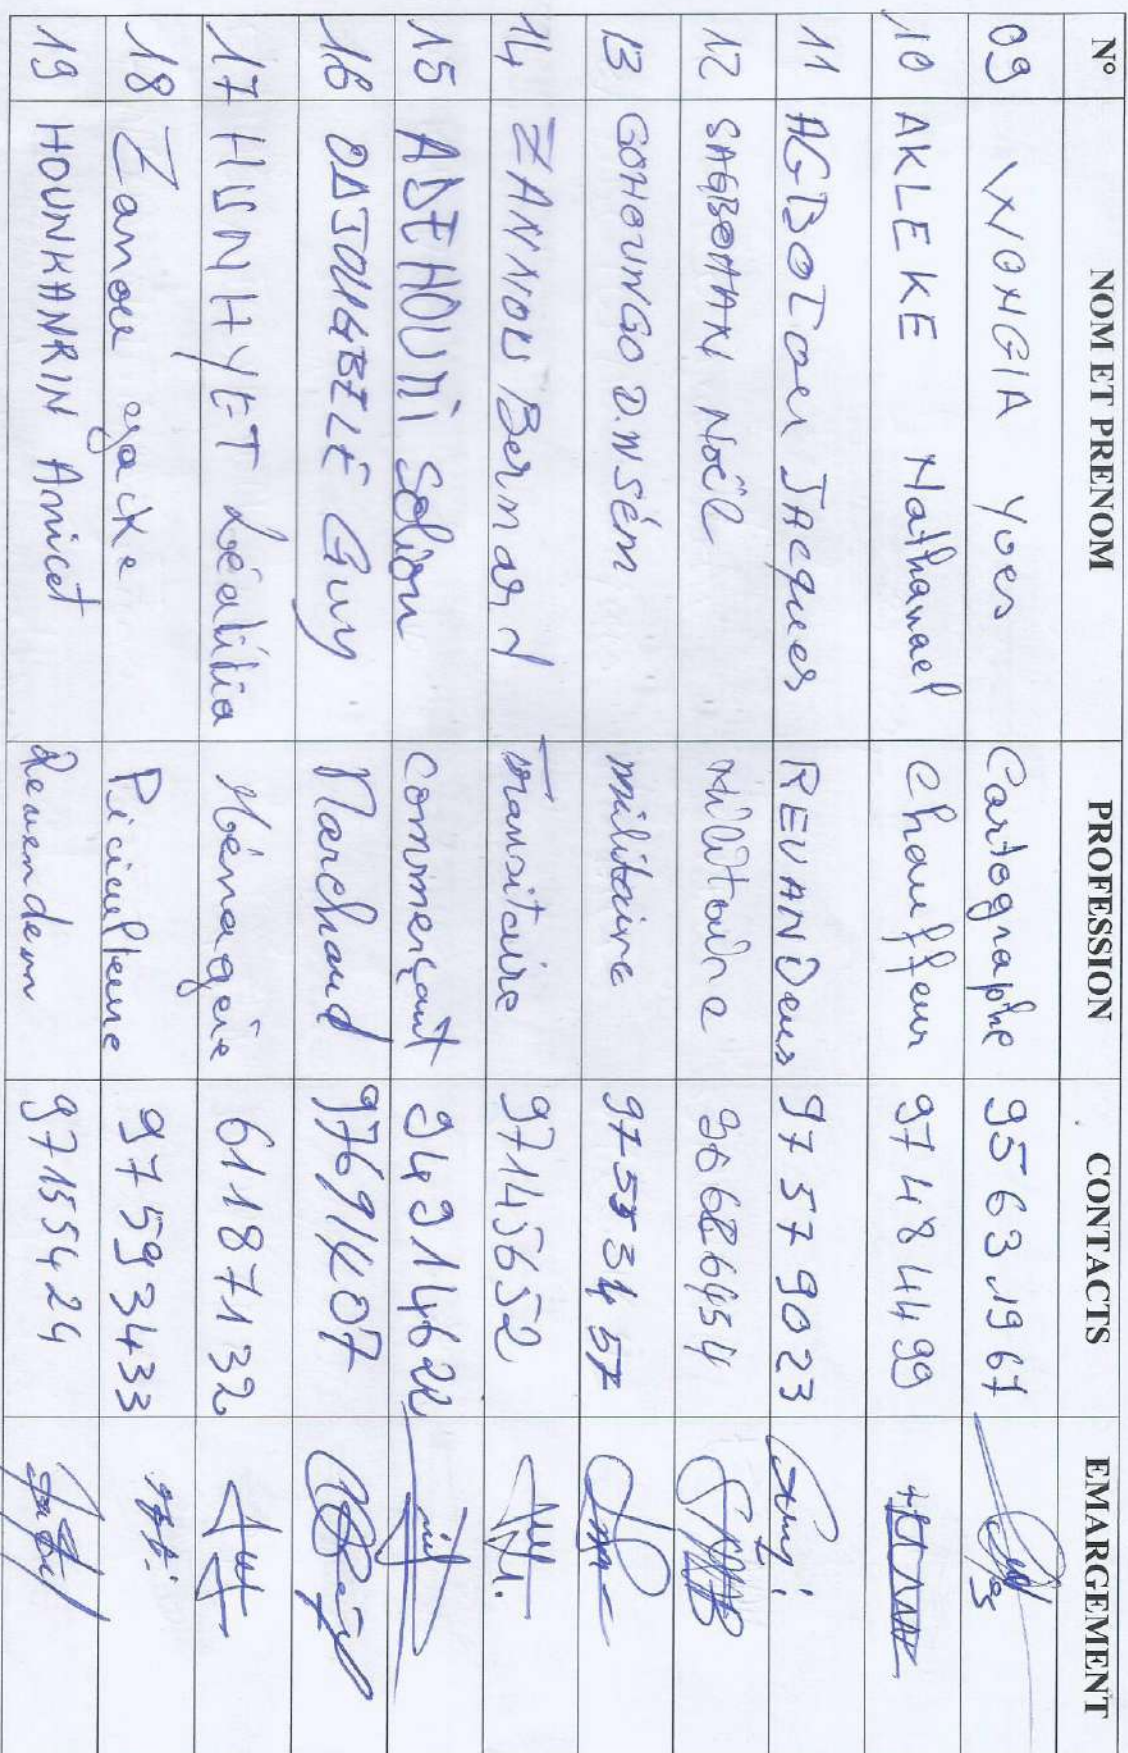 N° NOM ET PRENOM PROFESSION CONTACTS EMARGEMENT
09 WONGIA Yves Cartographe 95 63 19 67
10 AKLEKE Nathanael Chauffeur 97 48 44 99
11 AGBOTou JAcques REVANDeus 97 57 90 23
12 SAGBOHAN Noël Militaire 96686454
13 GOHOUNGO D.W Sém militaire 97 55 34 57
14 ZANNOU Bernard Transitaire 97145652
15 ADEHOUMi Solion commerçant 94914622
16 ODJOUGBELE Guy Marchand 97691407
17 HOUNHYET Léalitia Ménagère 61187132
18 Zanou Piciculteure 97593433
19 HOUNKANRIN Anicet Revendeur 97155424